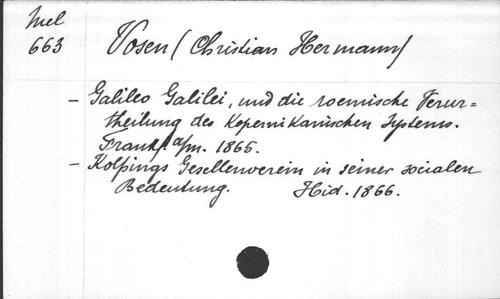 Mel
663
Vosen (Christian Hermann)
- Galileo Galilei, und die roemische Verur=
theilung des Kopernikanischen Systems.
Frankf a/m. 1865.
- Kolpings Gesellenverein in seiner socialen
Bedeutung. Hid. 1866.